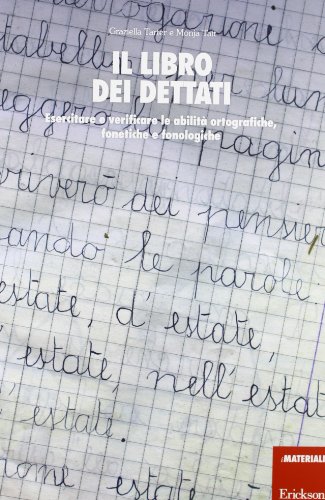 Graziella Tarter e Monja Tait
IL LIBRO
DEI DETTATI
Esercitare e verificare le abilità ortografiche,
fonetiche e fonologiche
interrogazioni
per
leggere pagin
riverò dei pensier
ando le parole.
estate, d'estate,
estate, nell'estat
estate.
nome estate
i MATERIALI
Erickson